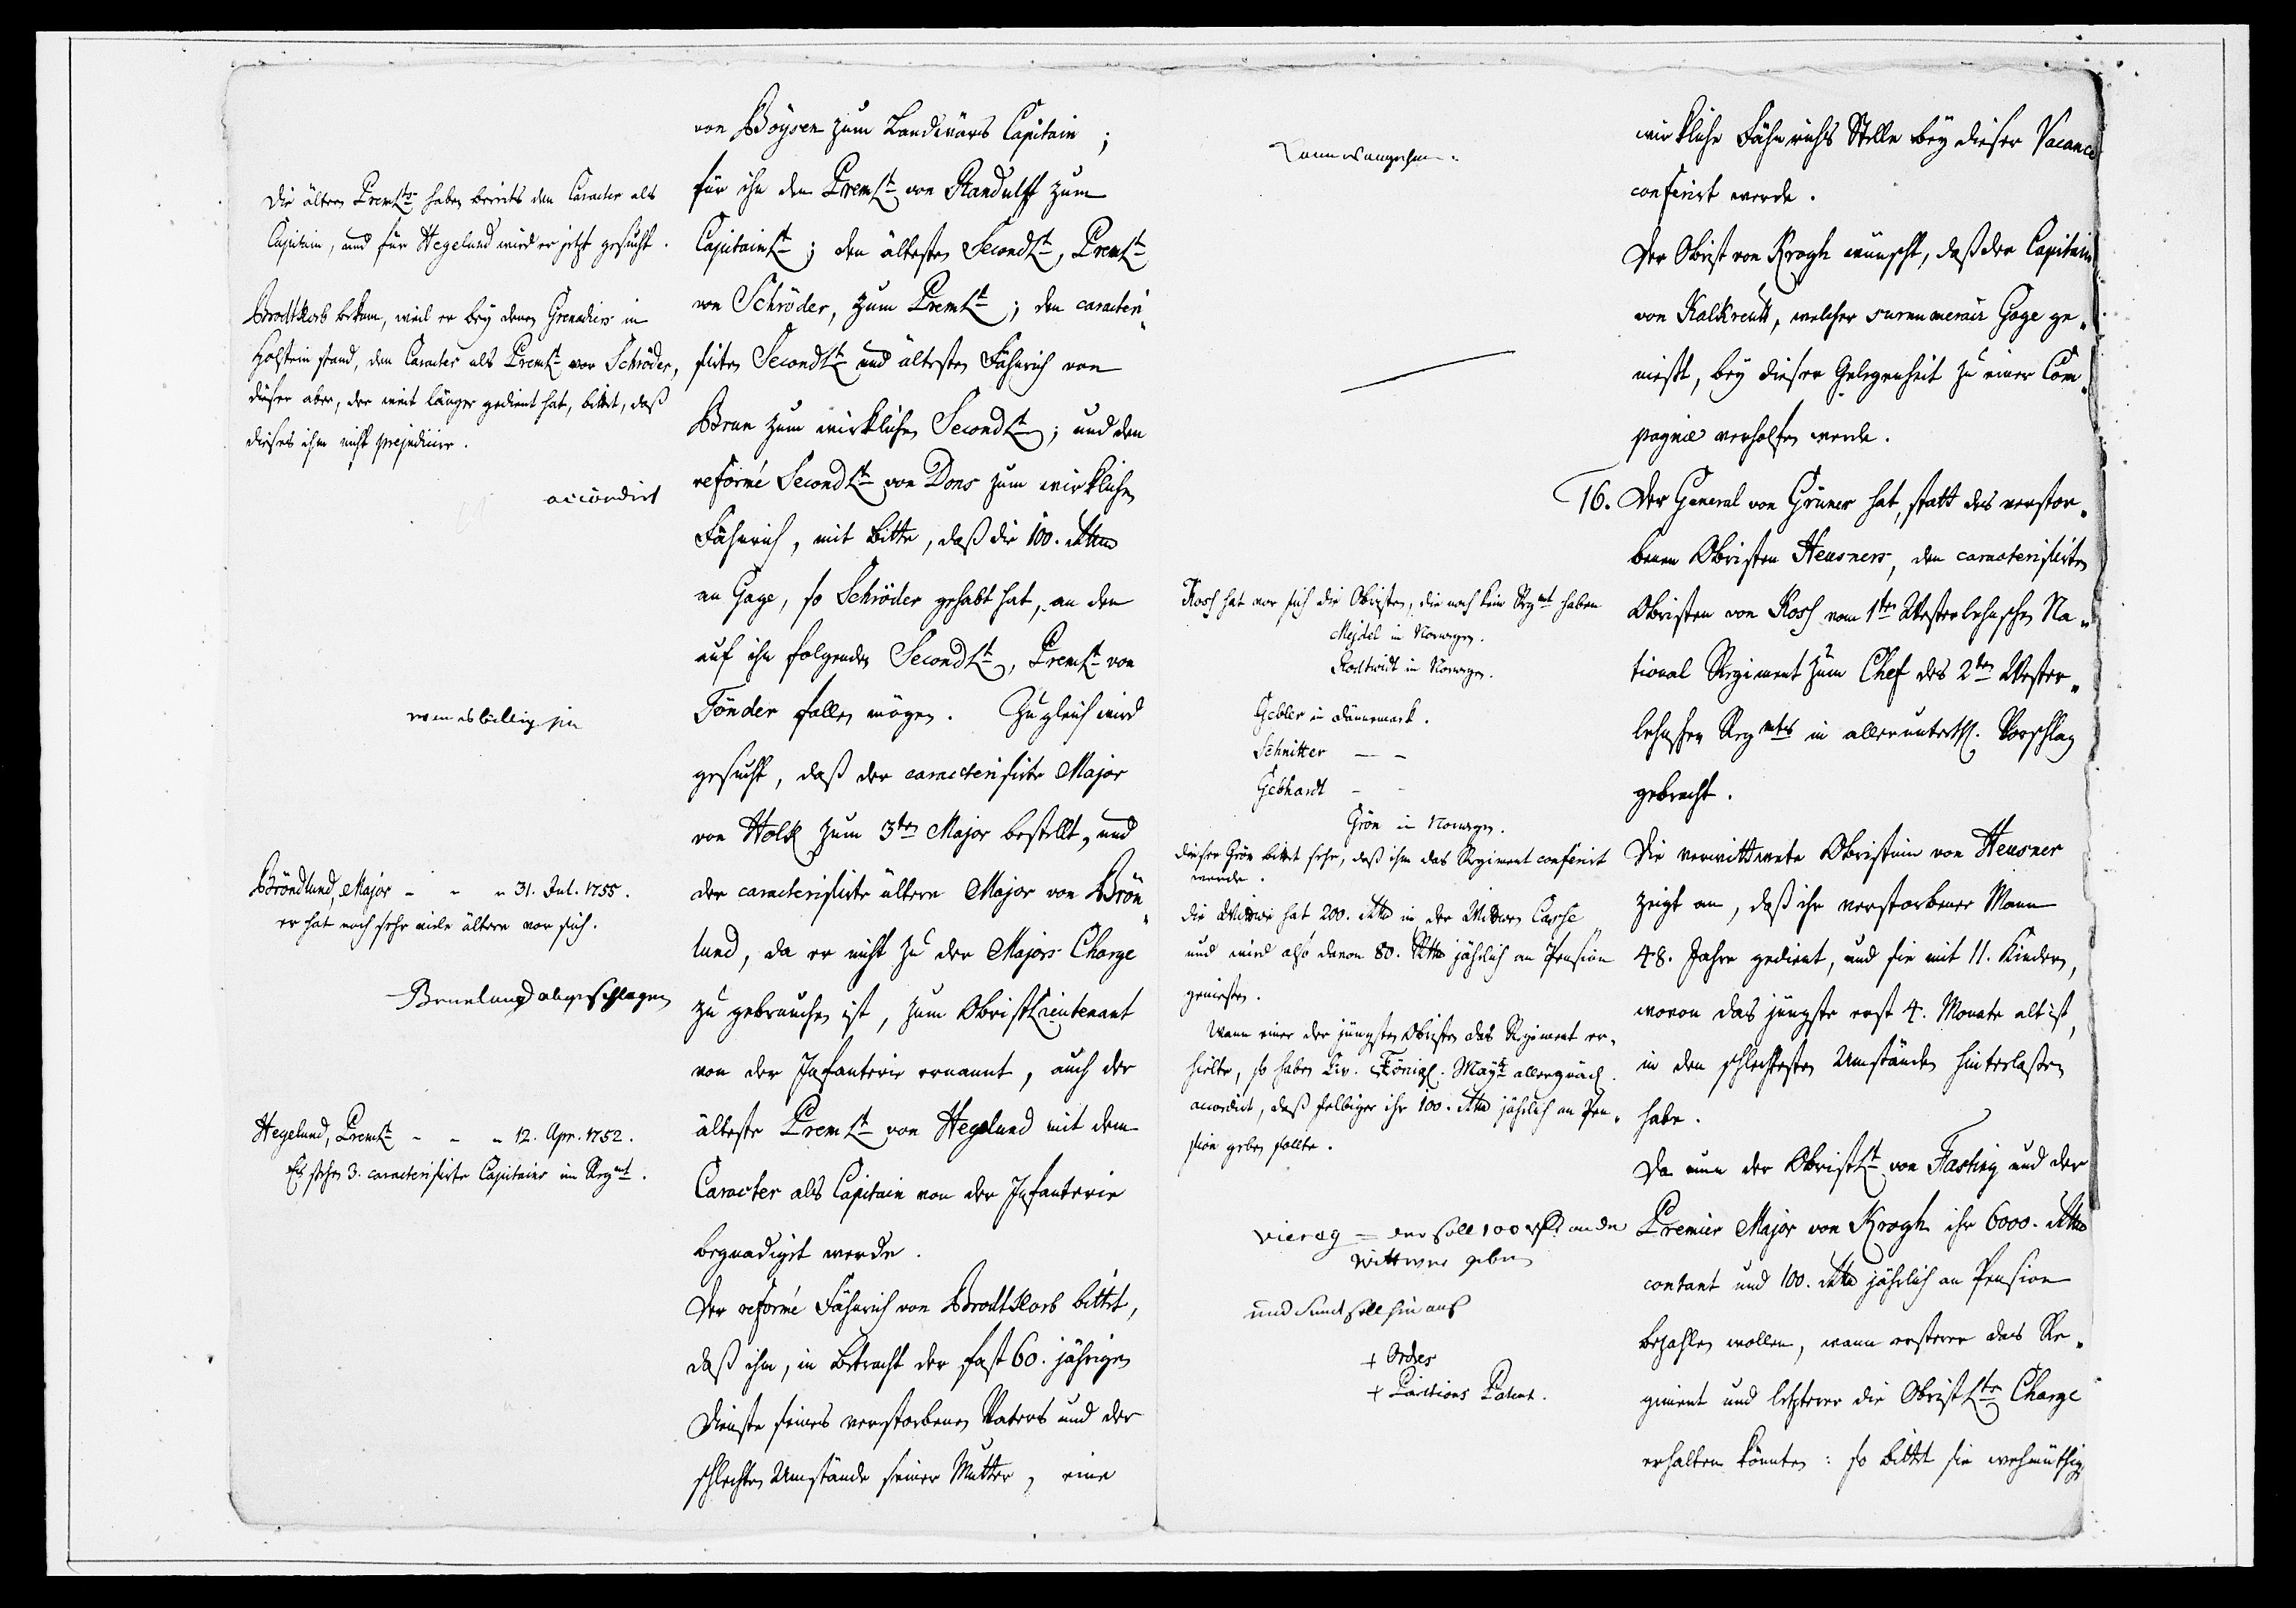 Die ältern PremLts haben bereits den Caracter als
Capitain, und für Hegelund wird er jetzt gesucht.
Brodtkorb bekam, weil er bey denen Grenadiers in
Holstein stand, den Caracter als PremLt vor Schröder,
dieser aber, der weit länger gedient hat, bittet, daß
dieses ihm nicht prejudicire.
accordirt
wen es billig
Bröndlund, Major - - - 31. Jul. 1755.
er hat noch sehr viele ältere vor sich.
Brunlund abgeschlagen
Hegelund, PremLt - - - 12. Apr. 1752.
Es stehen 3. caracterisirte Capitains im Regmt.
von Böysen zum Landwärs Capitain;
für ihn den PremLt von Randulff zum
CapitainLt; den ältesten SecondLt, PremLt
von Schröder, zum PremLt; den caracteri-
sirten SecondLt und ältesten Fähnrich von
Brun zum wirklichen SecondLt; und den
reformé SecondLt von Dons zum wirklichen
Fähnrich, mit Bitte, daß die 100. Rthlr
an Gage, so Schröder gehabt hat, an den
auf ihn folgenden SecondLt, PremLt von
Tönder fallen mögen. Zugleich wird
gesucht, daß der caracterisirte Major
von Holck zum 3ten Major bestellt, und
der caracterisirte ältere Major von Brön-
lund, da er nicht zu der Majors Charge
zu gebrauchen ist, zum ObristLieutenant
von der Infanterie ernannt, auch der
älteste PremLt von Hegelund mit dem
Caracter als Capitain von der Infanterie
begnadigt werde.
Der reformé Fähnrich von Brodtkorb bittet,
daß ihm, in Betracht der fast 60. jährigen
Dienste seines verstorbenen Vaters und der
schlechten Umstände seiner Mutter, eine
Kann es angehen.
Ross hat vor sich die Obristen, die noch kein Regmt haben
Mejdel in Norwegen.
in Norwegen.
Gebler in Dännemarck.
Schnitter - -
Gebhardt - -
Grön in Norwegen.
Dieser Grön bittet sehr, daß ihm das Regiment conferirt
werde.
Die Wittwe hat 200. Rthlr in der Wittwen Casse
und wird also davon 80. Rthlr jährlich an Pension
geniessen.
Wann einer der jüngsten Obristen das Regiment er-
hielte, so haben Ew. Königl. Mayt allergnäd.
accordirt, daß selbiger ihr 100. Rthlr jährlich an Pen-
sion geben sollte.
viereg = der soll 100 an der
wittwe geben
und soll hinaus
+ Ordres
+ Patent.
wirkliche Fähnrichs Stelle bey dieser Vacance
conferirt werde.
Der Obrist von Krogh wünscht, daß der Capitain
von Kalkreutt, welcher surnumerair Gage ge-
niesst, bey dieser Gelegenheit zu einer Com-
pagnie verholfen werde.
16. Der General von Grüner hat, statt des verstor-
benen Obristen Heusners, den caracterisirten
Obristen von Ross vom 1ten Westerlehnschen Na-
tional Regiment zum Chef des 2ten Wester-
lehnschen Regmts in allerunterth. Vorschlag
gebracht.
Die verwittwete Obristinn von Heusner
zeigt an, daß ihr verstorbener Mann
48. Jahre gedient, und sie mit 11. Kindern,
wovon das jüngste erst 4. Monate alt ist,
in den schlechtesten Umständen hinterlassen
habe.
Da nun der ObristLt von Fasting und der
Premier Major von Krogh ihr 6000. Rthlr
contant und 100. Rthlr jährlich an Pension
bezahlen wollen, wann ersterer das Re-
giment und letzterer die ObristLts Charge
erhalten könnten: so bittet sie wehmüthig